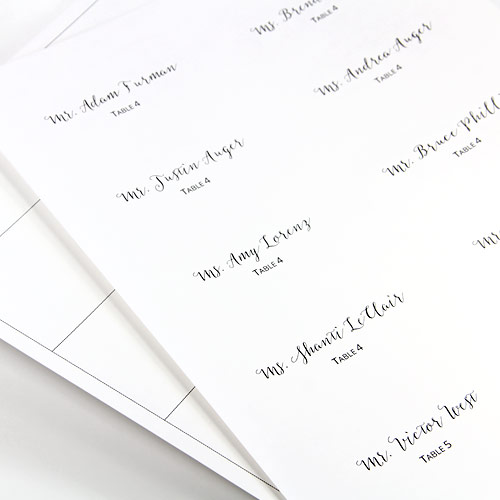 Mr. Adam Furman
Table 4
Mr. Justin Auger
Table 4
Ms. Amy Lorenz
Table 4
Ms. Shanti LeClair
Table 4
Mr. Victor West
Table 5
Ms.
Table 4
Ms. Andrea Auger
Table 4
Mr. Bruce
Table 4
Mr.